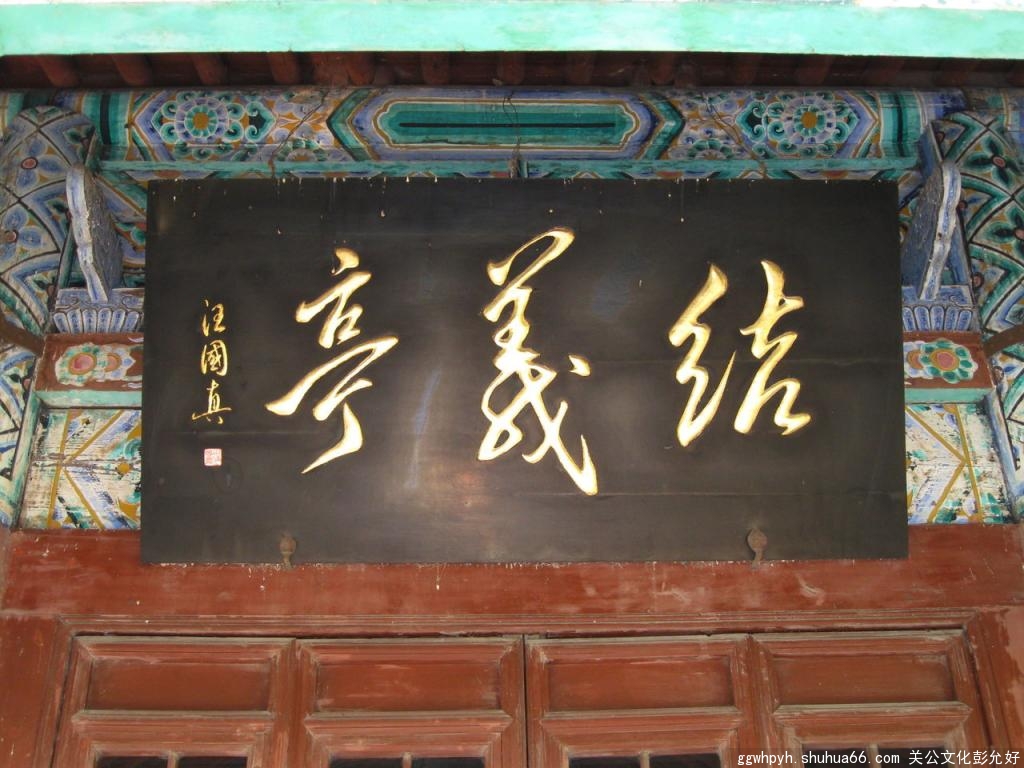 結義亭
汪國真
ggwhpyh.shuhua66.com 关公文化彭允好